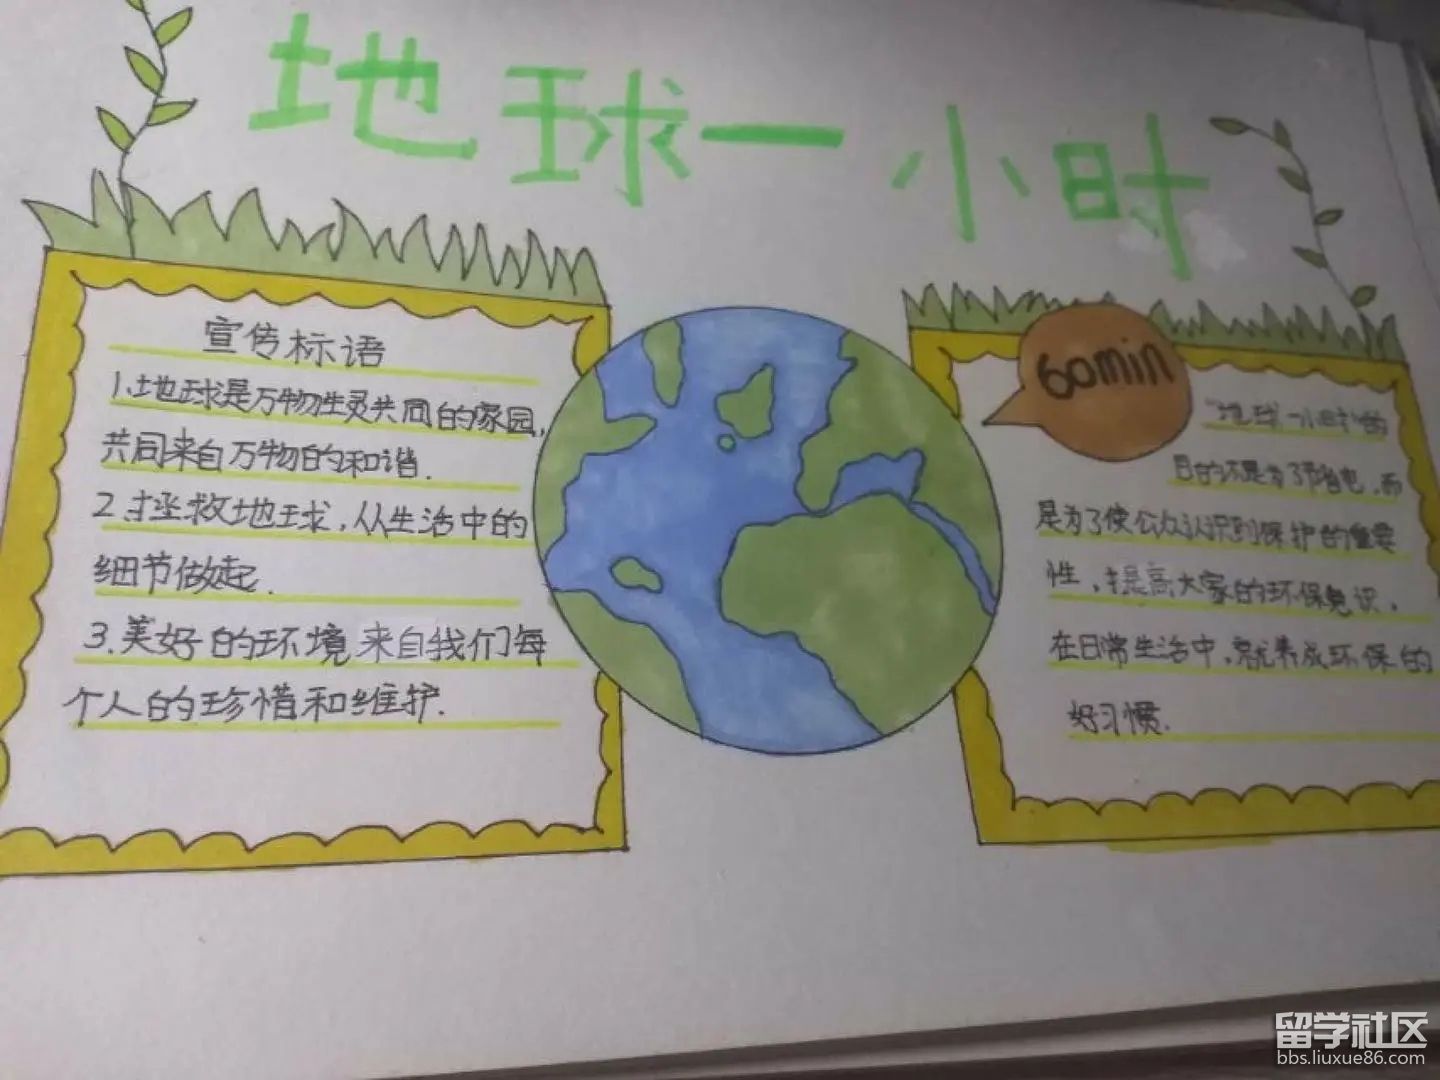 地球一小时
宣传标语
1.地球是万物生灵共同的家园,
共同来自万物的和谐.
2.拯救地球,从生活中的
细节做起.
3.美好的环境来自我们每
个人的珍惜和维护.
60min
"地球一小时"的
目的不是为了节省电,而
是为了使公众认识到保护的重要
性,提高大家的环保意识,
在日常生活中,就养成环保的
好习惯.
留学社区
bbs.liuxue86.com